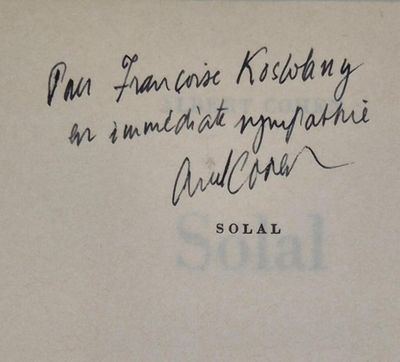 Pour Françoise Koslobny
en immédiate sympathie
Albert Cohen
SOLAL
Solal